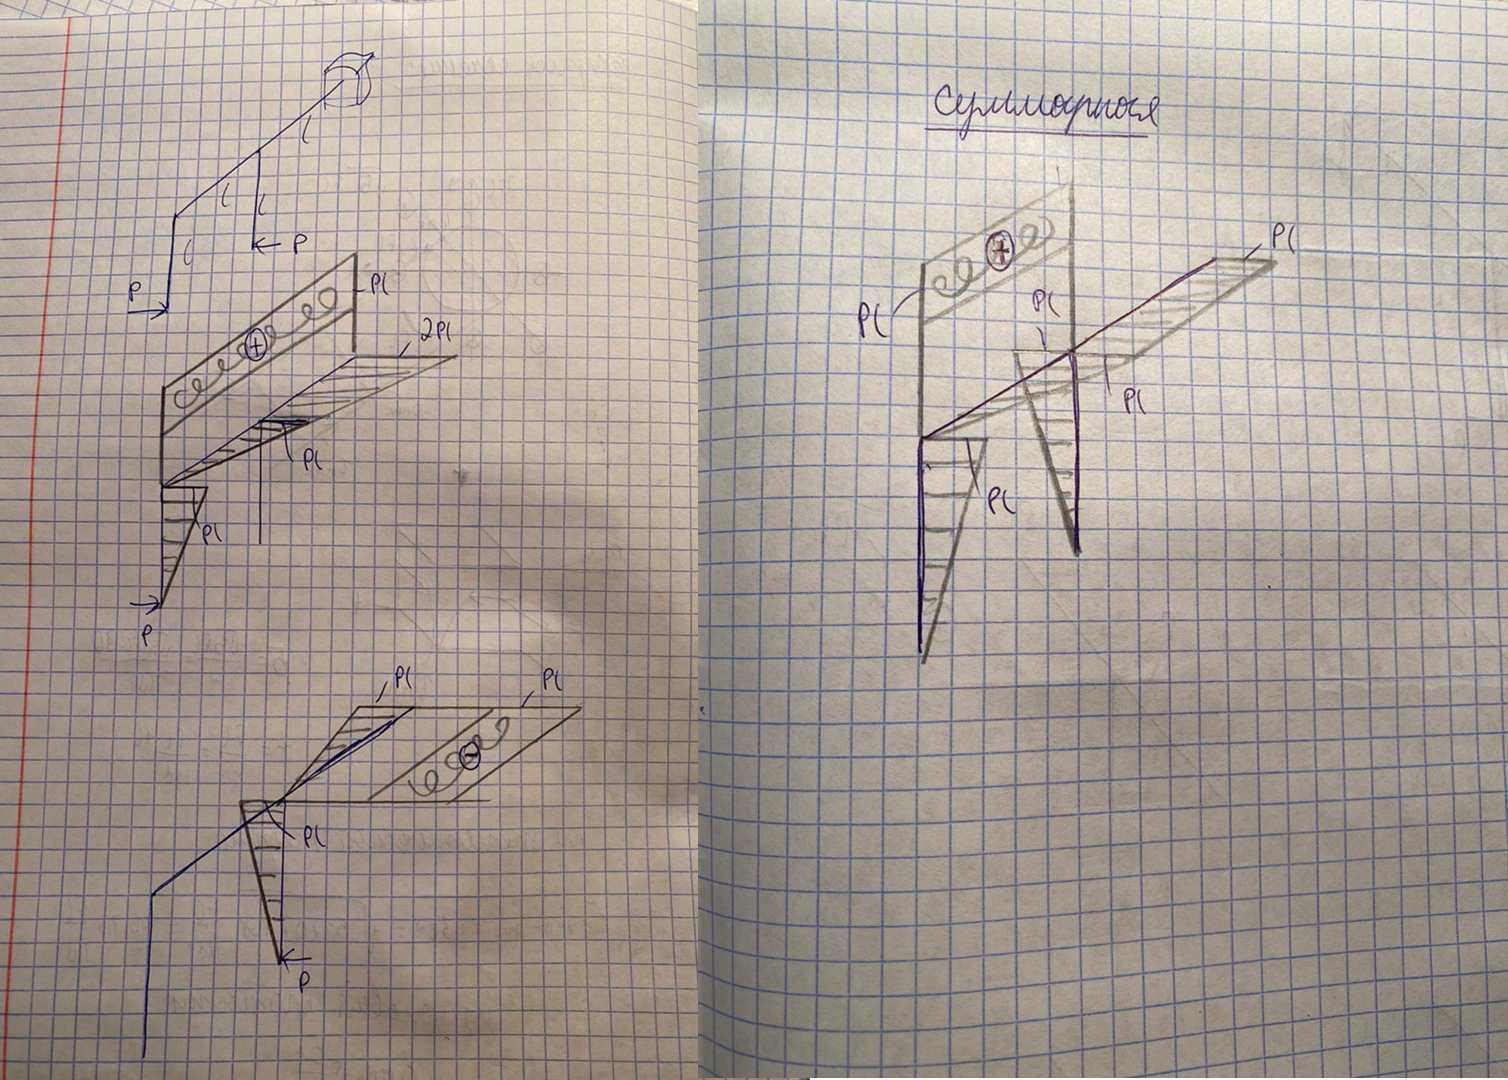 l
l
l
l
P
P
Pl
+
2Pl
Pl
Pl
P
Pl
Pl
Pl
P
Суммарная
Pl
+
Pl
Pl
Pl
Pl